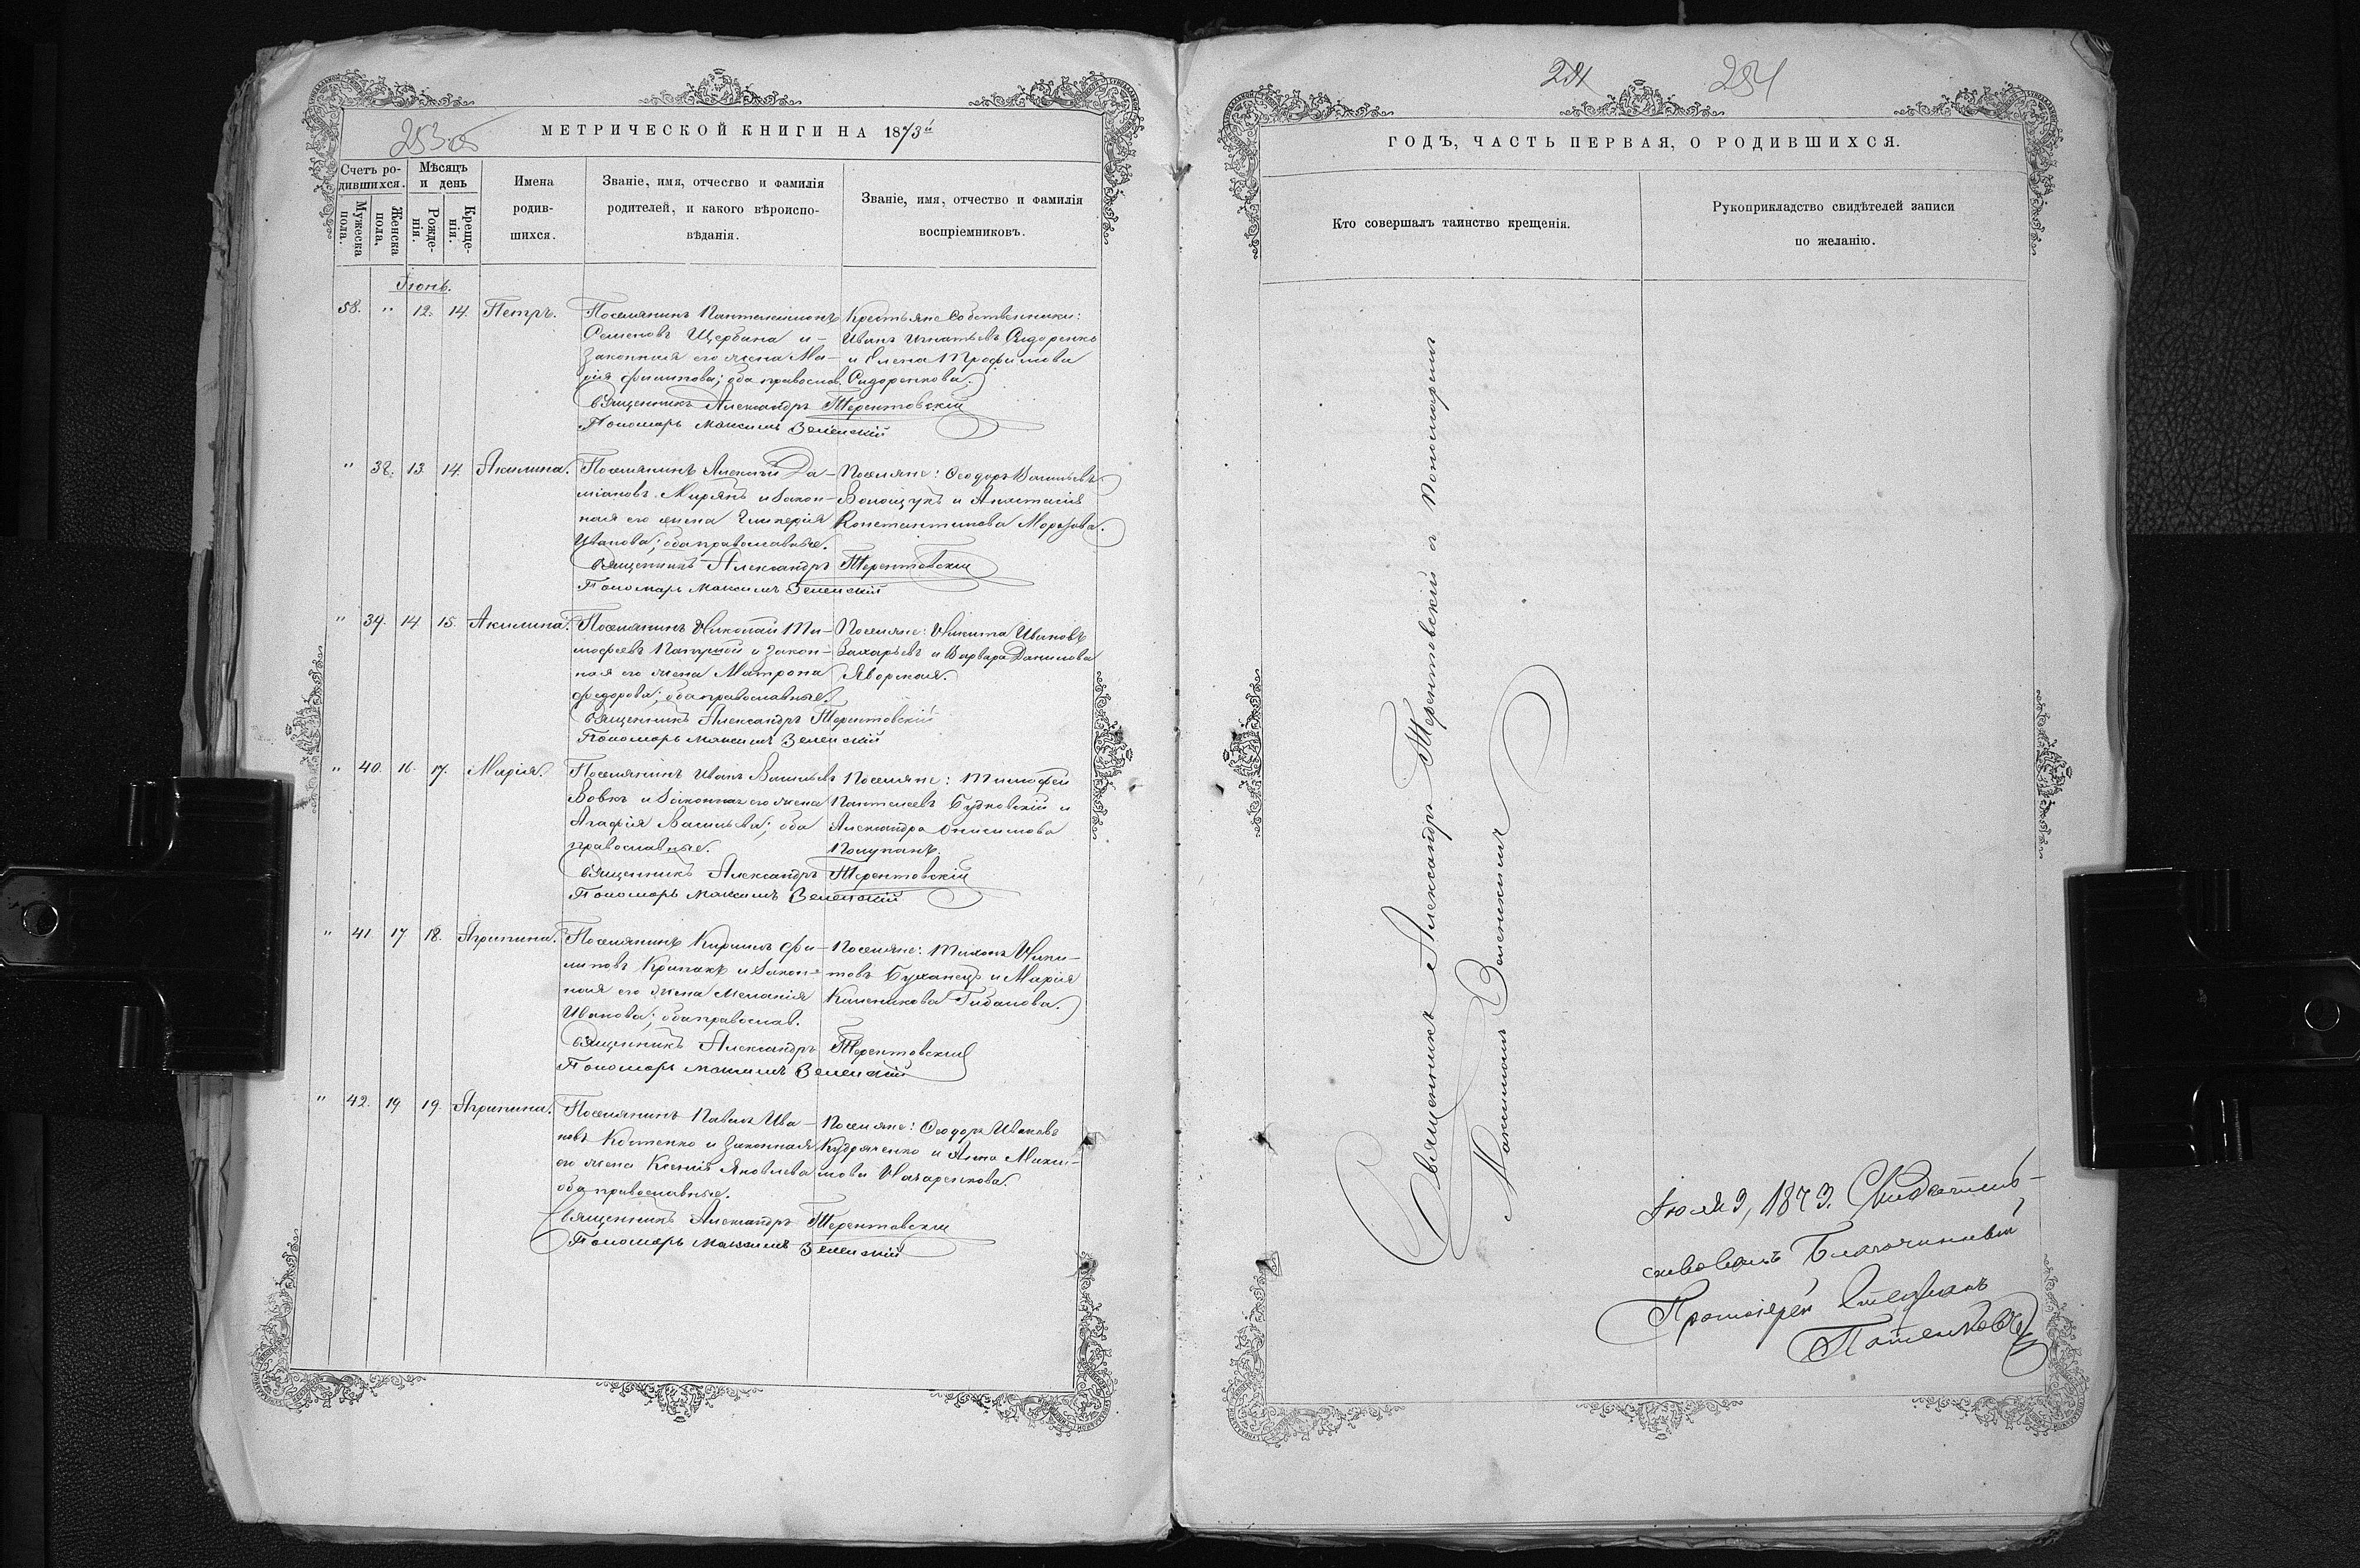 253 об
МЕТРИЧЕСКОЙ КНИГИ НА 1873й
Счетъ родившихся.
Мужеска пола.
Женска пола.
Мѣсяцъ и день
Рожденія.
Крещенія.
Имена родившихся.
Званіе, имя, отчество и фамилія родителей, и какого вѣроисповѣданія.
Званіе, имя, отчество и фамилія воспріемниковъ.
Іюнь.
58. " 12. 14. Петръ.
Поселянинъ Пантелеимонъ
Семеновъ Щербина и
законная его жена Ма-
рія Филипова; оба православ.
Крестьяне Собственники:
Иванъ Игнатьевъ Сидоренко
и Елена Трофимова
Сидоренкова.
Священникъ Александръ Терентовскій
Пономарь Максимъ Зеленскій
" 38. 13. 14. Акилина.
Поселянинъ Алексій Да-
міановъ Мирянъ и закон-
ная его жена Гликерія
Иванова; оба православные.
Поселяне: Ѳеодоръ Васильевъ
Волощукъ и Анастасія
Константинова Морозова.
Священникъ Александръ Терентовскій
Пономарь Максимъ Зеленскій
" 39. 14. 15. Акилина.
Поселянинъ Николай Ти-
мофеевъ и закон-
ная его жена Матрона
Федорова; оба православные.
Поселяне: Никита Ивановъ
Захарьевъ и Варвара Данилова
Яворская.
Священникъ Александръ Терентовскій
Пономарь Максимъ Зеленскій
" 40. 16. 17. Марія.
Поселянинъ Иванъ Васильевъ
Вовкъ и законная его жена
Агафія Васильева; оба
православные.
Поселяне: Тимофей
Пантелеевъ Будковскій и
Александра Онисимова
Полупанъ.
Священникъ Александръ Терентовскій
Пономарь Максимъ Зеленскій
" 41. 17 18. Агрипина.
Поселянинъ Кирилъ Фи-
липовъ и закон-
ная его жена Меланія
Иванова; оба православ.
Поселяне: Тихонъ Ники-
товъ Буханецъ и Марія
Калениковa
Священникъ Александръ Терентовскій
Пономарь Максимъ Зеленскій
" 42. 19. 19. Агрипина.
Поселянинъ Павелъ Ива-
новъ Костенко и законная
его жена Ксенія Яковлева
оба православные.
Поселяне: Ѳеодоръ Ивановъ
Кудряченко и Анна Макси-
мова Назаренкова.
Священникъ Александръ Терентовскій
Пономарь Максимъ Зеленскій
254
ГОДЪ, ЧАСТЬ ПЕРВАЯ, О РОДИВШИХСЯ.
Кто совершалъ таинство крещенія.
Рукоприкладство свидѣтелей записи
по желанію.
Священникъ Александръ Терентовскій с Пономаремъ
Максимомъ Зеленскимъ
Іюля 9, 1873. Свидѣтель-
ствовалъ Благочинный
Протоіерей Стефанъ